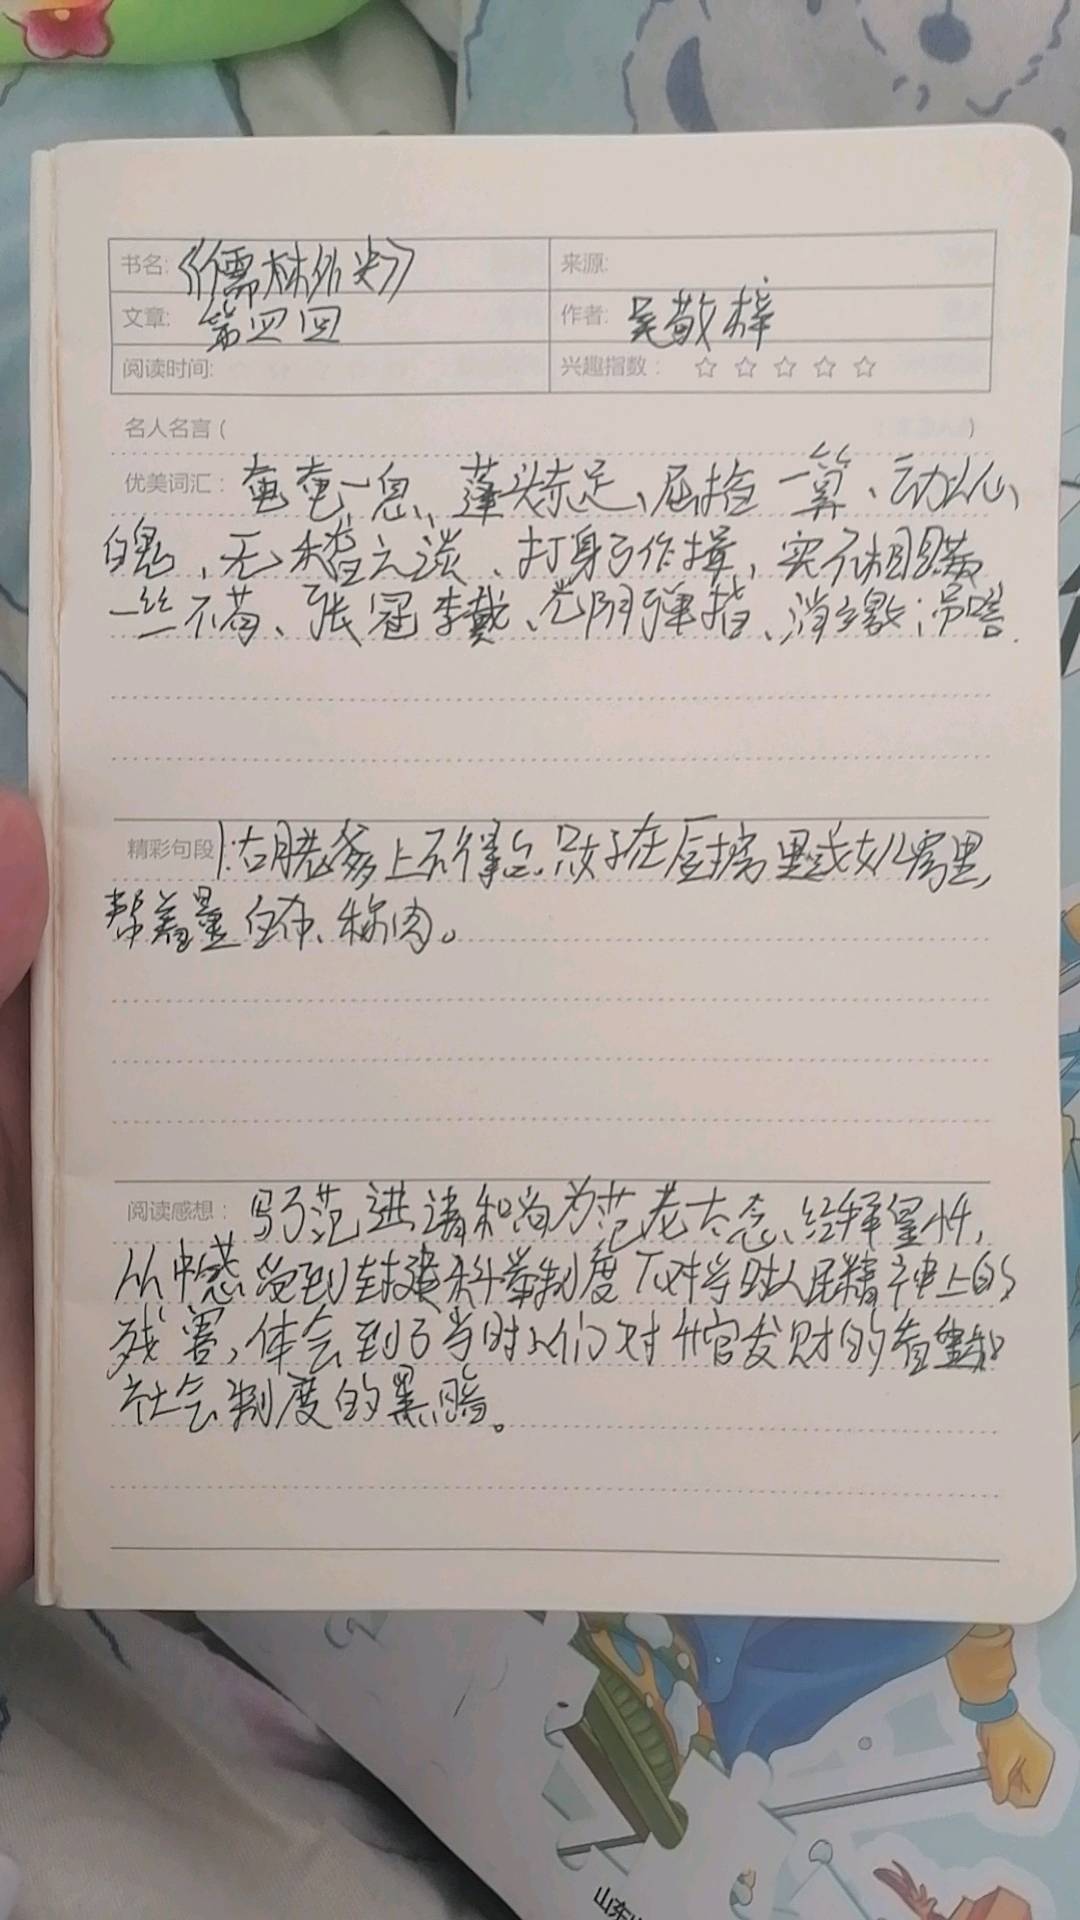 书名: 《儒林外史》 来源:
文章: 第四回 作者: 吴敬梓
阅读时间: 兴趣指数: ☆ ☆ ☆ ☆ ☆
名人名言 ( )
优美词汇: 奄奄一息、蓬头赤足、屈指一算、动人心
魄、无稽之谈、打身了作揖、实不相瞒
一丝不苟、张冠李戴、光阴弹指、消缴、吊唁.
精彩句段: 1.胡老爹上不得台,只好在厨房里或女儿房里,
帮着量白布、称肉。
阅读感想: 写了范进请和尚为范老太念经拜星忏,
从中感受到封建科举制度下对当时人民精神上的
残害,体会到了当时人们对升官发财的看重和
社会制度的黑暗。
山东